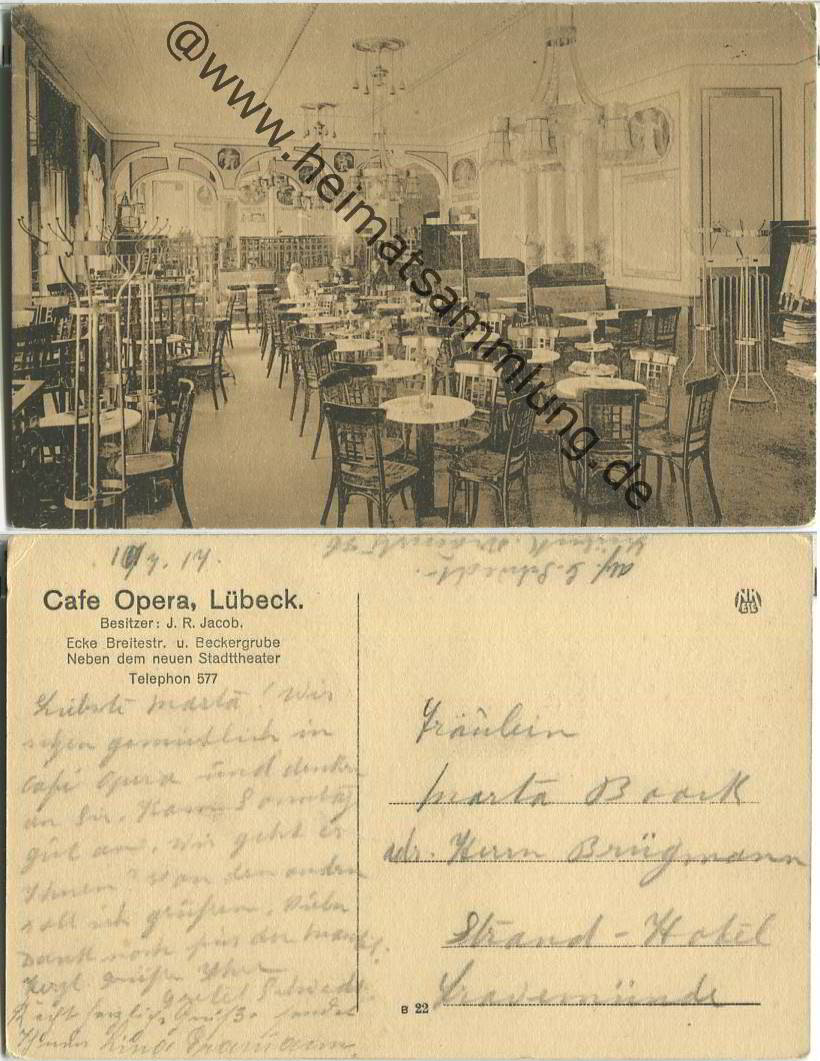 @www.heimatsammlung.de
Cafe Opera, Lübeck.
Besitzer: J. R. Jacob,
Ecke Breitestr. u. Beckergrube
Neben dem neuen Stadttheater
Telephon 577
Liebste Marta! Wir
gemütlich in
Café Opera und denken
an Sie. Kam Sonntag
gut an. Wie geht es
Ihnen? Von den andern
soll ich grüßen. Vielen
Dank noch für
Herzl. Grüße Ihre
Recht herzliche Grüße sendet
Fräulein
Marta Boork
adr. Herrn Brügmann
Strand-Hotel
Travemünde
B 22